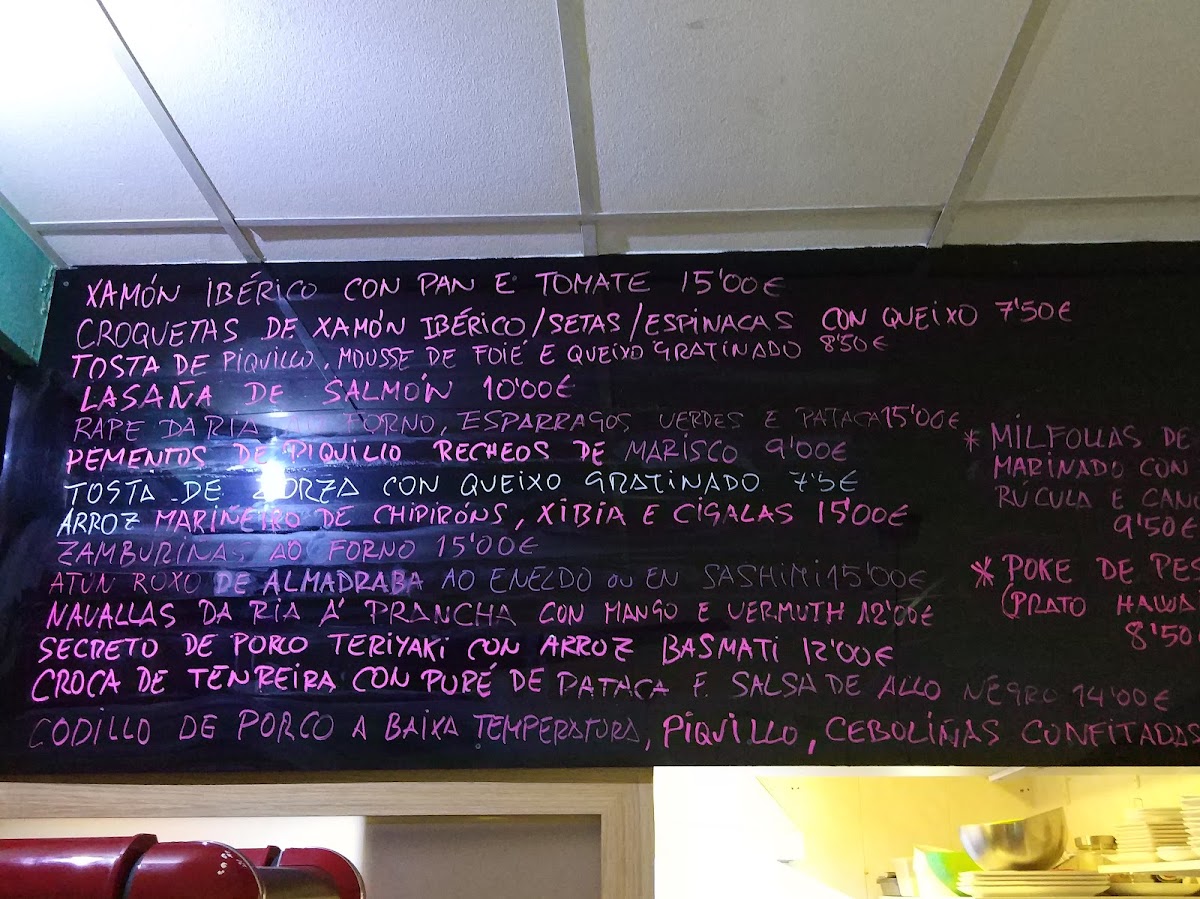 XAMÓN IBÉRICO CON PAN E TOMATE 15'00€
CROQUETAS DE XAMÓN IBÉRICO/SETAS/ESPINACAS CON QUEIXO 7'50€
TOSTA DE PIQUILLO, MOUSSE DE FOIE E QUEIXO GRATINADO 8'50€
LASAÑA DE SALMÓN 10'00€
RAPE DA RIA AO FORNO, ESPARRAGOS VERDES E PATACA 15'00€
PEMENTOS DE PIQUILLO RECHEOS DE MARISCO 9'00€
TOSTA DE ZORZA CON QUEIXO GRATINADO 7'5€
ARROZ MARIÑEIRO DE CHIPIRÓNS, XIBIA E CIGALAS 15'00€
ZAMBURIÑAS AO FORNO 15'00€
ATUN ROXO DE ALMADRABA AO ENELDO ou EN SASHIMI 15'00€
NAVALLAS DA RIA Á PRANCHA CON MANGO E VERMUTH 12'00€
SECRETO DE PORCO TERIYAKI CON ARROZ BASMATI 12'00€
CROCA DE TENREIRA CON PURÉ DE PATACA E SALSA DE ALLO NEGRO 14'00€
CODILLO DE PORCO A BAIXA TEMPERATURA, PIQUILLO, CEBOLIÑAS CONFITADAS
* MILFOLLAS DE
MARINADO CON
RÚCULA E
9'50€
* POKE DE
(PRATO
8'50